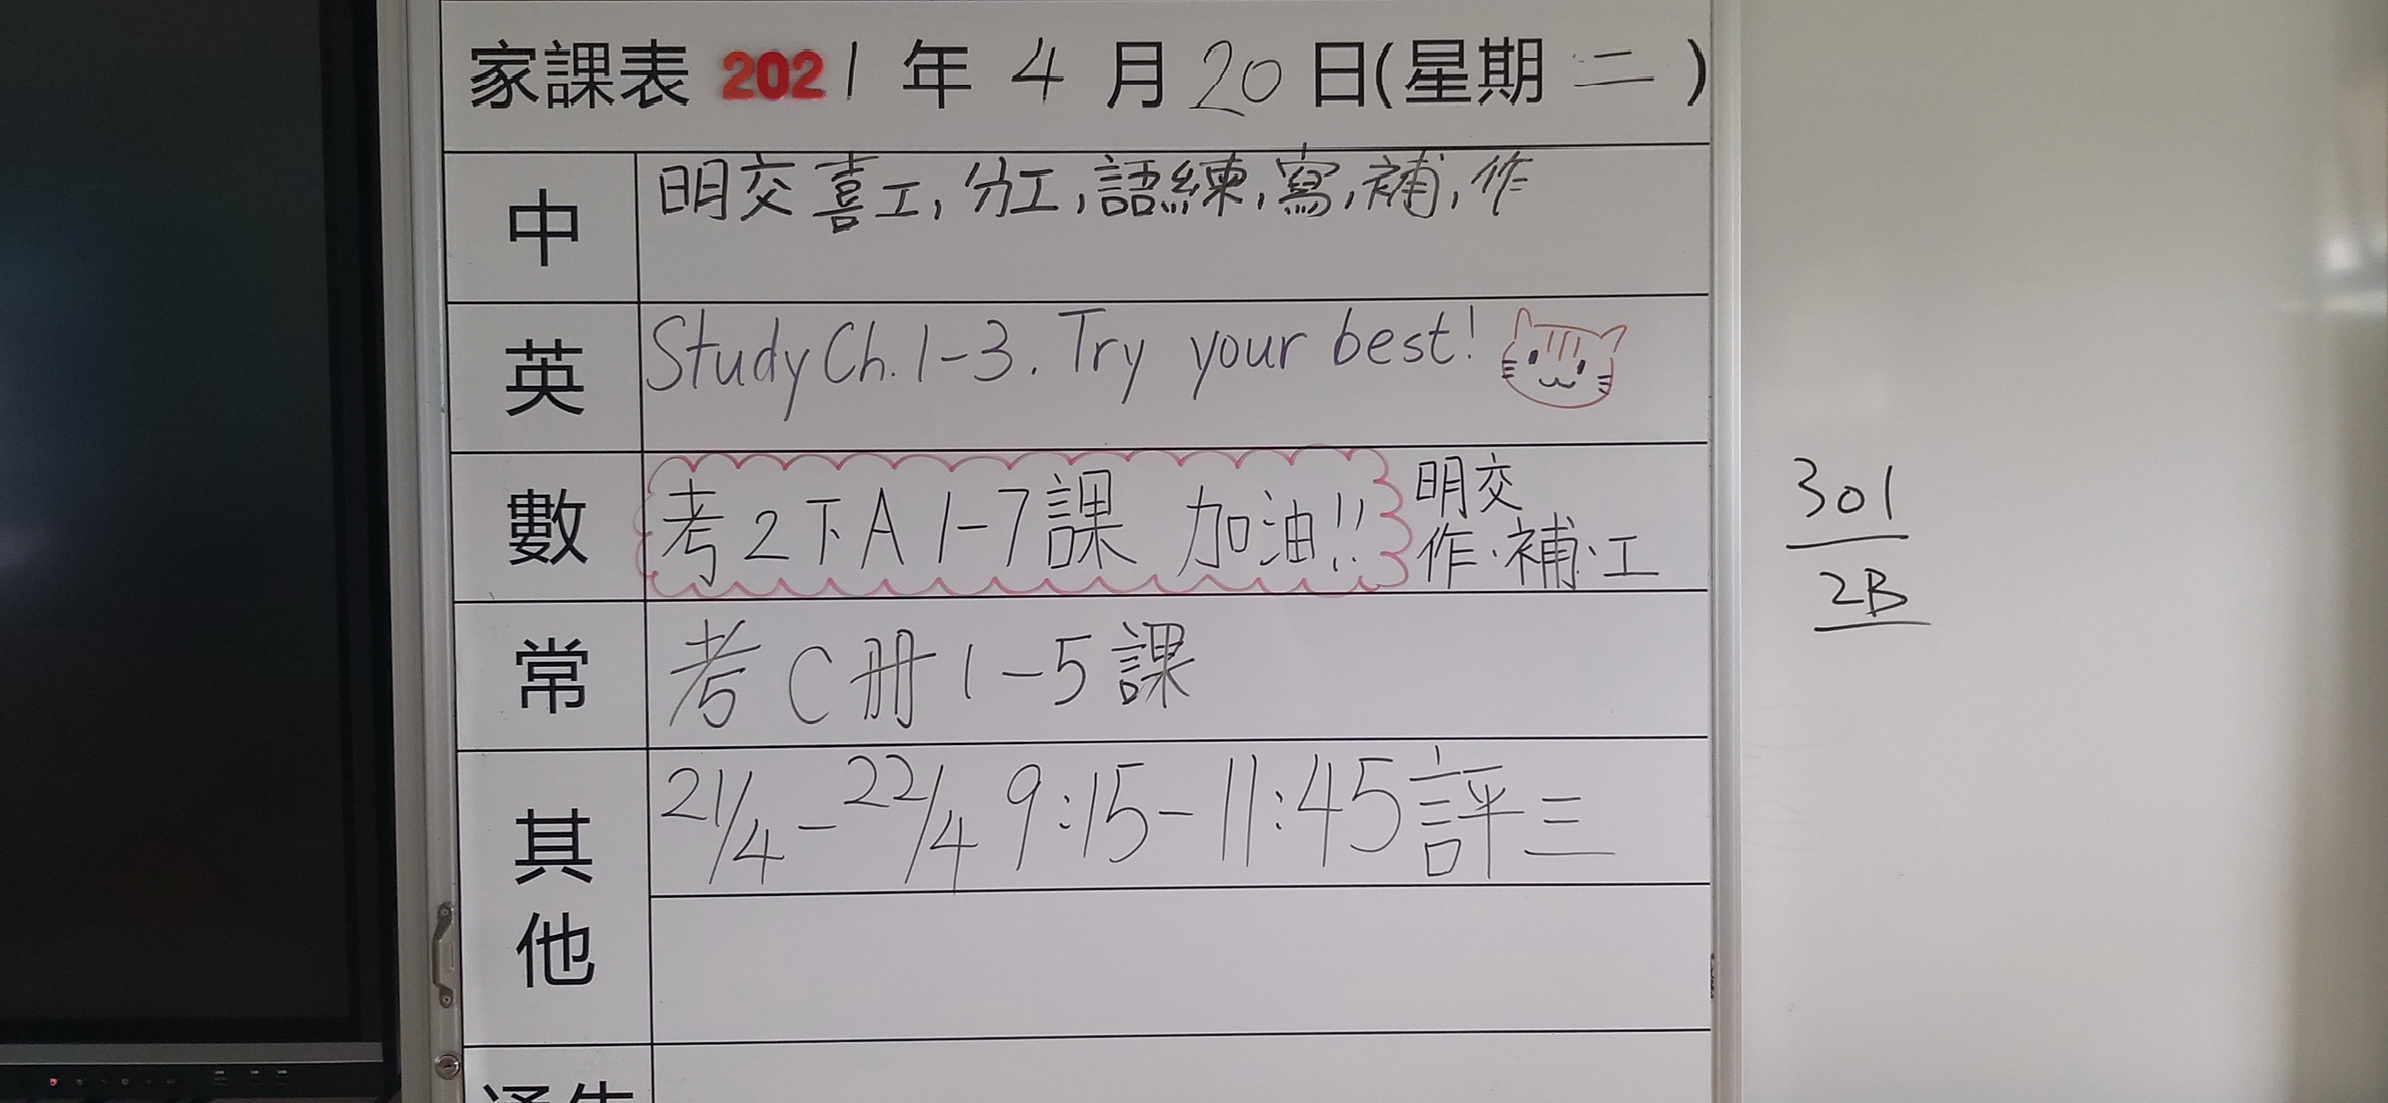 家課表 2021 年 4 月 20 日(星期 二 )
中
明交喜工, 分工, 語練, 寫, 補, 作
英
Study Ch. 1-3. Try your best!
數
考 2 下 A 1-7 課 加油!!
明交
作·補·工
常
考 C 冊 1-5 課
其他
21/4 - 22/4 9:15 - 11:45 評三
301
2B